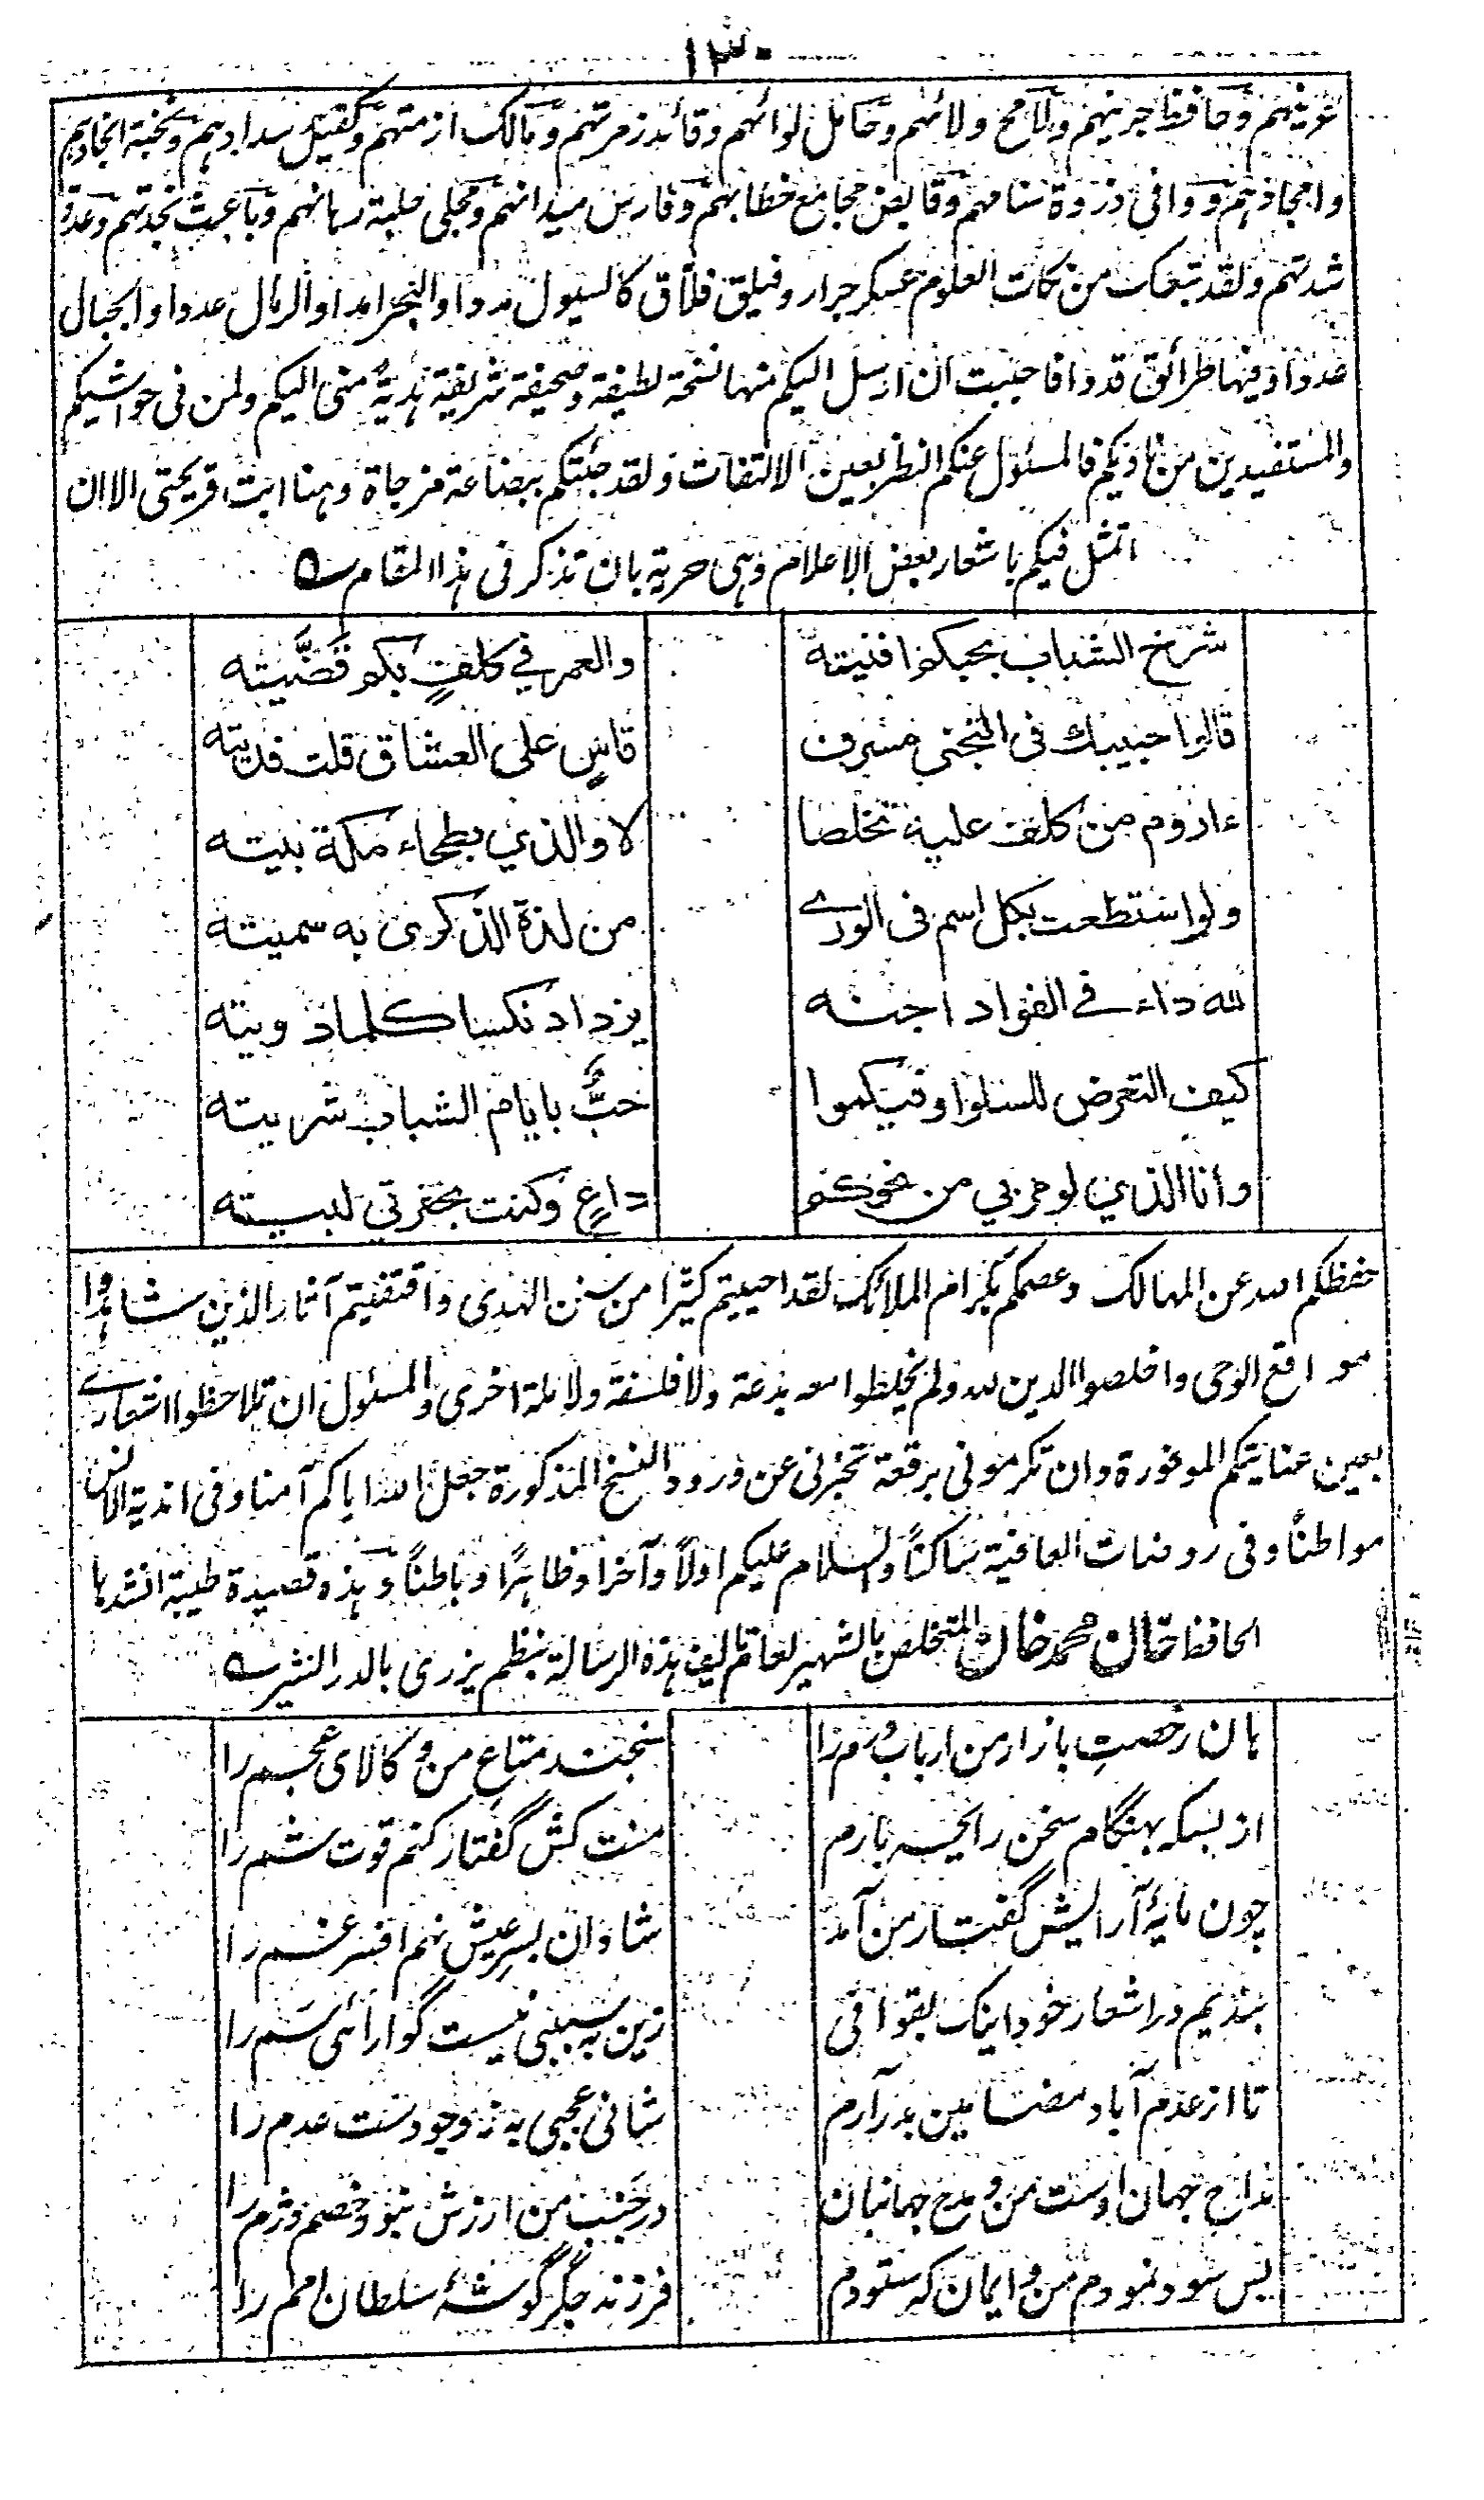 ١٣٠
عرينهم وحافظ جرينهم ولامح ولائهم وحامل لوائهم وقائد زمرتهم ومالك ازمتهم وكفيل سدادهم ونخبة انجادهم
وامجادهم ووافى ذروة سنامهم وقابض مجامع خطابهم وفارس ميدانهم ومجلى حلبة رهانهم وباعث نجدتهم وعدة
شدتهم ولقد تبعكت من نكات العلوم عسكر جرار وفيلق فلاق كالسيول مددا والبحر امدادا والرمال عددا والجبال
عددا وفيها طرائق قددا فاحببت ان ارسل اليكم منها نسخة لطيفة وصحيفة شريفة هدية منى اليكم ولمن فى حواشيكم
والمستفيدين من ناديكم فالمسئول عنكم النظر بعين الالتفات ولقد جئتكم ببضاعة مزجاة وهنا ابت قريحتى الا ان
اتمثل فيكم باشعار بعض الاعلام وهى حرية بان تذكر فى هذا المقام ؎
شرخ الشباب بحبكموا فنيته والعمر في كلفٍ بكم قضَّيته
قالوا حبيبك فى التجنى مسرف قاسٍ على العشاق قلت فديته
ءاروم من كلف عليه تخلصا لا والذي بطحاء مكة بيته
ولو استطعت بكل اسم فى الورے من لذة الذكرى به سميته
لله داء في الفواد اجنه يزداد نكسا كلما دويته
كيف التعرض للسلوا وفيكموا حبٌّ بايام الشباب شريته
وانا الذي لو مر بي من نحوكم داعٍ وكنت بحفرتي لبيته
حفظكم الله عن المهالك وعصمكم بكرام الملائك لقد احييتم كثيرا من سنن الهدى واقتفيتم آثار الذين شاهدوا
مواقع الوحى واخلصوا الدين لله ولم يخلطوا معه بدعة ولا فلسفة ولا ملة اخرى والمسئول ان تلاحظوا اشعارے
بعين عنايتكم الموفورة وان تكرمونى برقعة تخبرنى عن ورود النسخ المذكورة جعل الله اياكم آمنا وفى اندية الانس
مواطنًا وفى روضات العافية ساكنًا والسلام عليكم اولًا وآخرا وظاهرًا وباطنًا وهذه قصيدة طيبة انشدها
الحافظ خان محمد خان المتخلص بالشهير لعام تاليف هذه الرسالة بنظم يزرى بالدر النثير ؎
هان رخصتِ بازار من ارباب درم را سنجند متاعِ من و كالاى عجم را
از بسكه بهنگام سخن رايحه بارم منت كش گفتار كنم قوت شم را
چون مايهٔ آرايش گفتار من آمد شادان بسرِ عيش نهم افسر غم را
بنديم در اشعار خود اينك بقوافى زين به سببى نيست گوارائى سم را
تا از عدم آباد مضامين بدر آرم شانى عجبى به ز وجودست عدم را
مداح جهان اوست من و مدح جهانبان در جنب من ارزش نبود خصم دژم را
بس سود نمودم من و ايمان كه ستودم فرزند جگر گوشهٔ سلطان امم را